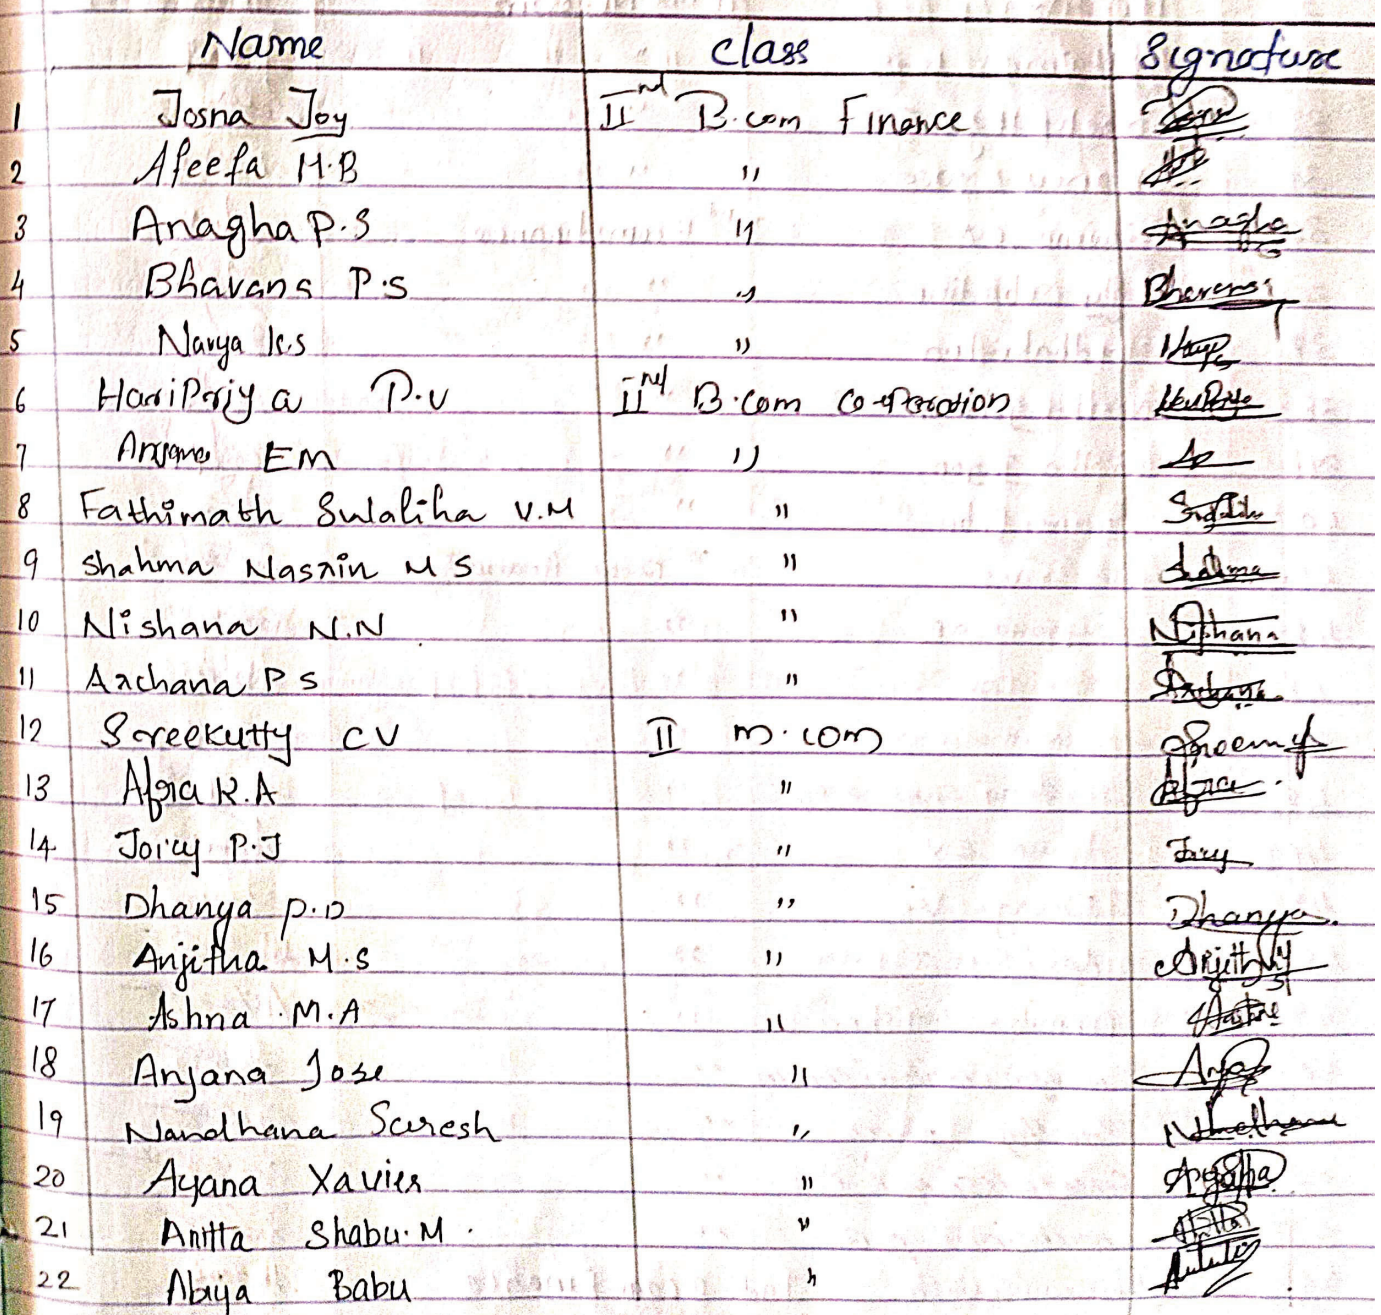 Name Class Signature
1 Josna Joy IInd B.com Finance
2 Afeefa H.B "
3 Anagha P.S " Anagha
4 Bhavana P.S "
5 Navya K.S "
6 HariPriya P.V IInd B.com Co-operation
7 Anjana EM "
8 Fathimath Sulaliha V.M "
9 Shahma Nasrin M S " Shahma
10 Nishana N.N " Nishana
11 Archana P S " Archana
12 Sreekutty CV II M.com
13 Afra K.A " Afra
14 Joicy P.J " Joicy
15 Dhanya P.D " Dhanya.
16 Anjitha M.S " Anjitha
17 Ashna M.A "
18 Anjana Jose "
19 Nandhana Suresh "
20 Ayana Xavier "
21 Anitta Shabu.M. "
22 Babu "